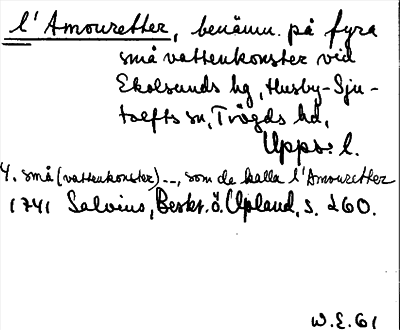 l'Amouretter, benämn. på fyra
små vattenkonster vid
Ekolsunds hg, Husby-Sju-
tolfts sn, Trögds hd,
Upps. l.
4. små (vattenkonster) --, som de kalla l'Amouretter
1741 Salvius, Beskr. ö. Upland, s. 260.
W.E. 61